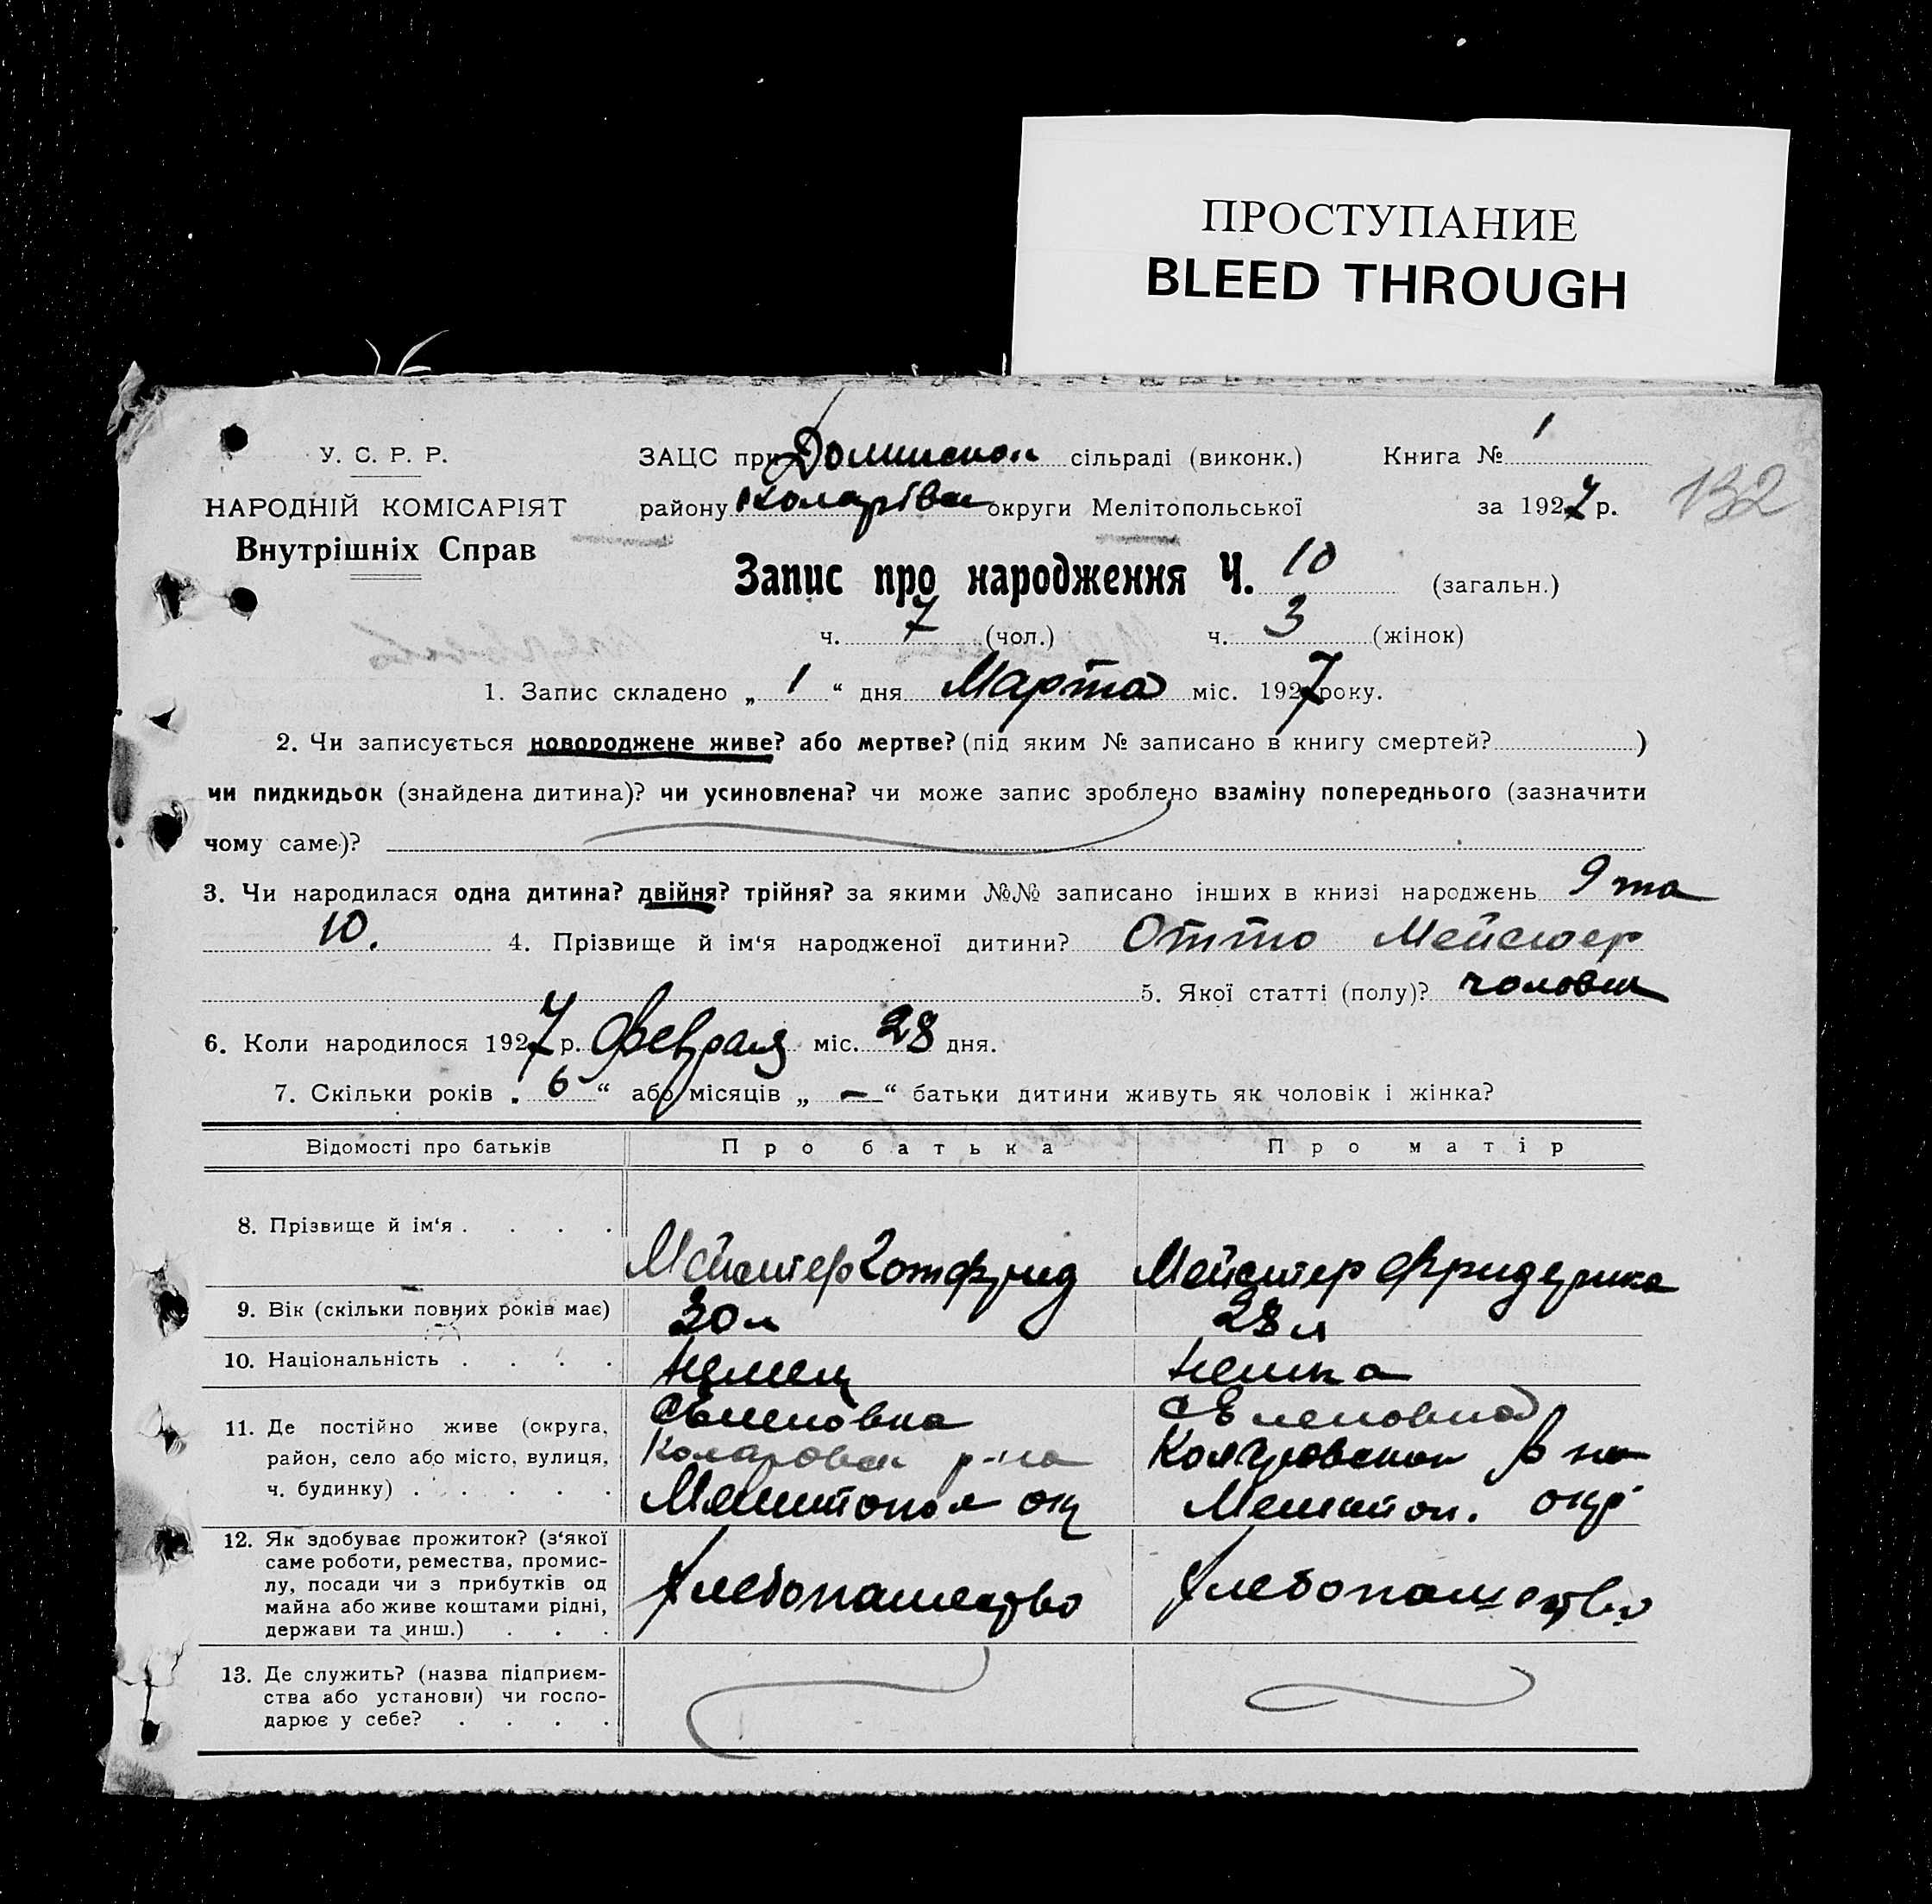 ПРОСТУПАНИЕ
BLEED THROUGH
У. С. Р. Р.
НАРОДНІЙ КОМІСАРІЯТ
Внутрішніх Справ
ЗАЦС при сільраді (виконк.) Книга № 1
району округи Мелітопольської за 1927 р.
132
Запис про народження Ч. 10 (загальн.)
ч. 7 (чол.) ч. 3 (жінок)
1. Запис складено „ 1 “ дня Марта міс. 1927 року.
2. Чи записується новороджене живе? або мертве? (під яким № записано в книгу смертей? )
чи пидкидьок (знайдена дитина)? чи усиновлена? чи може запис зроблено взаміну попереднього (зазначити
чому саме)?
3. Чи народилася одна дитина? двійня? трійня? за якими №№ записано інших в книзі народжень 9 та
10. 4. Прізвище й ім'я народженої дитини? Отто Мейстер
5. Якої статті (полу)? чоловік
6. Коли народилося 1927 р. Февраля міс. 28 дня.
7. Скільки років „ 6 “ або місяців „ — “ батьки дитини живуть як чоловік і жінка?
Відомості про батьків Про батька Про матір
8. Прізвище й ім'я . . . . Мейстер Готфрид Мейстер Фридерика
9. Вік (скільки повних років має) 30 л 28 л
10. Національність . . . . Немец Немка
11. Де постійно живе (округа,
район, село або місто, вулиця,
ч. будинку) . . . . .
р-на
Коларовск р-на
Мелитопол ок Мелитоп. окр
12. Як здобуває прожиток? (з'якої
саме роботи, ремества, промис-
лу, посади чи з прибутків од
майна або живе коштами рідні,
держави та инш.) . . .
Хлебопашество Хлебопашество
13. Де служить? (назва підприєм-
ства або установи) чи госпо-
дарює у себе? . . . .